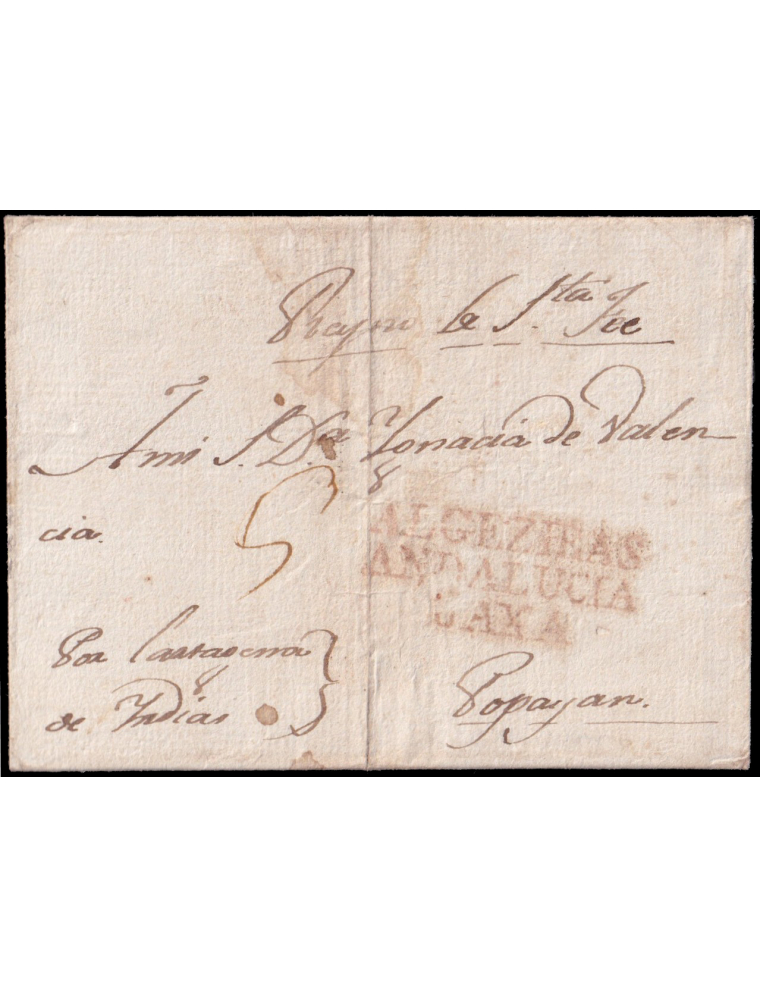 Reyno de S.ta Fee
A mi S.ª D.ña Ignacia de Valen-
cia.
5
ALGEZIRAS
ANDALUCIA
BAXA
Por Cartagena
de Yndias
Popayan.